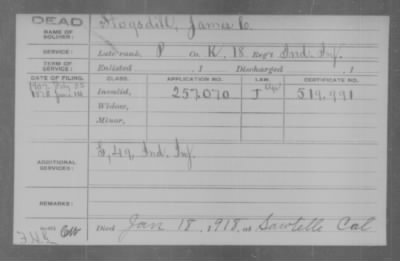 DEAD
NAME OF SOLDIER: Mogsdill, James C.
SERVICE: Late rank, P Co. K, 18 Reg't Ind. Inf.
TERM OF SERVICE: Enlisted , 1 Discharged , 1
DATE OF FILING. CLASS. APPLICATION NO. LAW. CERTIFICATE NO.
Invalid, 257,070 J 519,991
Widow,
Minor,
ADDITIONAL SERVICES: E, 49, Ind. Inf.
REMARKS:
Died Jan 18, 1918, at Sawtelle Cal